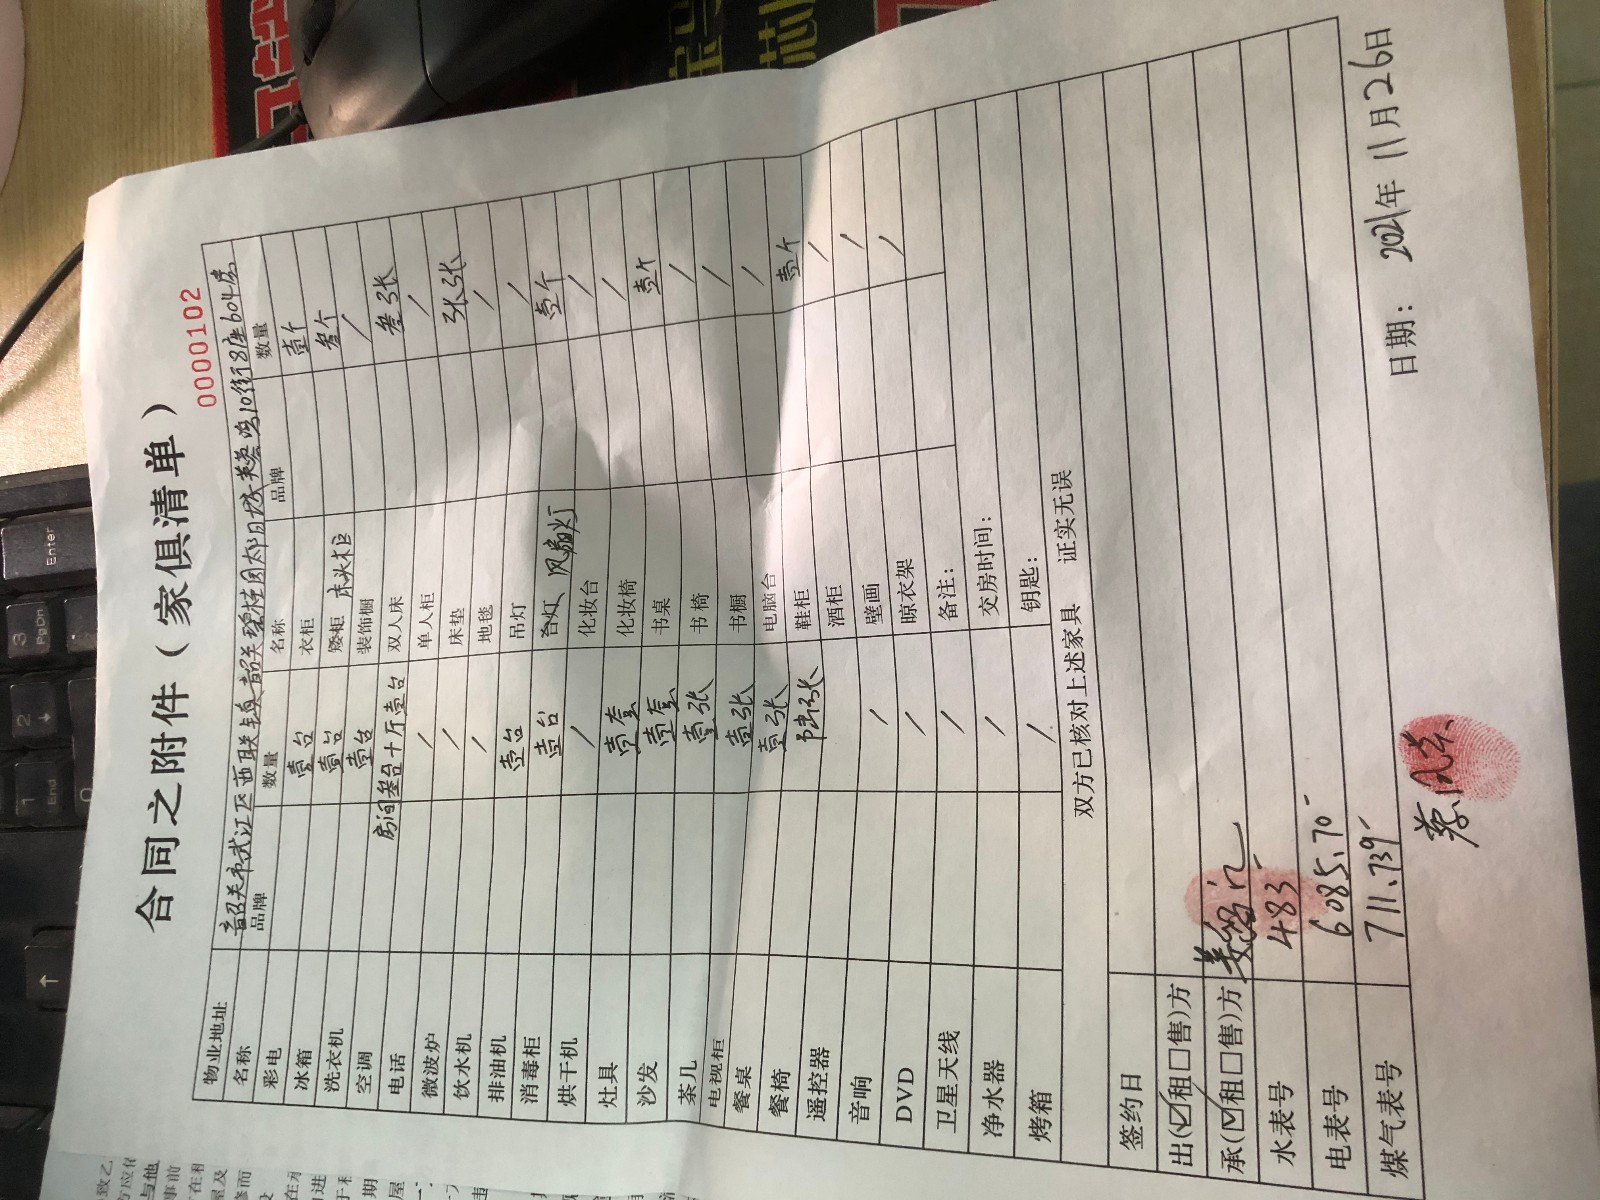 合同之附件（家俱清单）
0000102
物业地址 韶关市武江区西联镇韶关碧桂园太阳城芙蓉湾10街8座604房
名称 品牌 数量 名称 品牌 数量
彩电 壹台 衣柜 壹个
冰箱 壹台 矮柜 床头柜 叁个
洗衣机 壹台 装饰橱 /
空调 房间叁台 大厅壹台 双人床 叁张
电话 / 单人柜 /
微波炉 / 床垫 张张
饮水机 / 地毯 /
排油机 壹台 吊灯 /
消毒柜 壹台 台灯 风扇灯 壹个
烘干机 / 化妆台 /
灶具 壹套 化妆椅 /
沙发 壹套 书桌 壹个
茶几 壹张 书椅 /
电视柜 壹张 书橱 /
餐桌 壹张 电脑台 /
餐椅 陆张 鞋柜 壹个
遥控器 酒柜 /
音响 / 壁画 /
DVD / 晾衣架 /
卫星天线 / 备注：
净水器 / 交房时间：
烤箱 / 钥匙：
双方已核对上述家具 证实无误
签约日
出(☑租□售)方
承(☑租□售)方
水表号 483
电表号 6085.70
煤气表号 711.739
日期： 2021年11月26日
Enter
3
PgDn
2
1
End
0